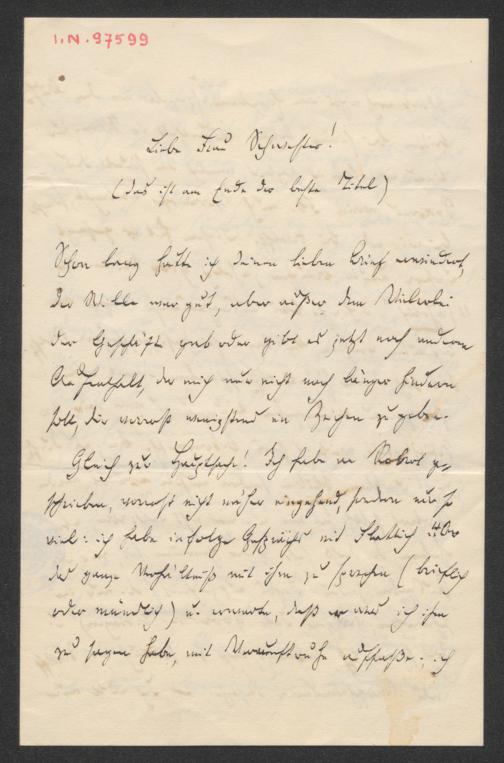 I.N. 97599
Liebe Frau Schwester!
(das ist am Ende der beste Titel)
Schon lang hätte ich deinen lieben Brief erwiedert,
der Wille war gut, aber außer dem Vielerlei
der Geschäfte gab oder gibt es jetzt noch anderen
Aufenthalt, der mich nur nicht noch länger hindern
soll, dir vorerst wenigstens ein Zeichen zu geben.
Gleich zur Hauptsache! Ich habe an Robert ge-
schrieben, vorerst nicht näher eingehend, sondern nur so
viel: ich habe infolge Gesprächs mit
das ganze Verhältniß mit ihm zu sprechen (brieflich
oder mündlich) u. erwarte, daß er was ich ihm
zu sagen habe, mit Vernunftruhe auffasse; ich